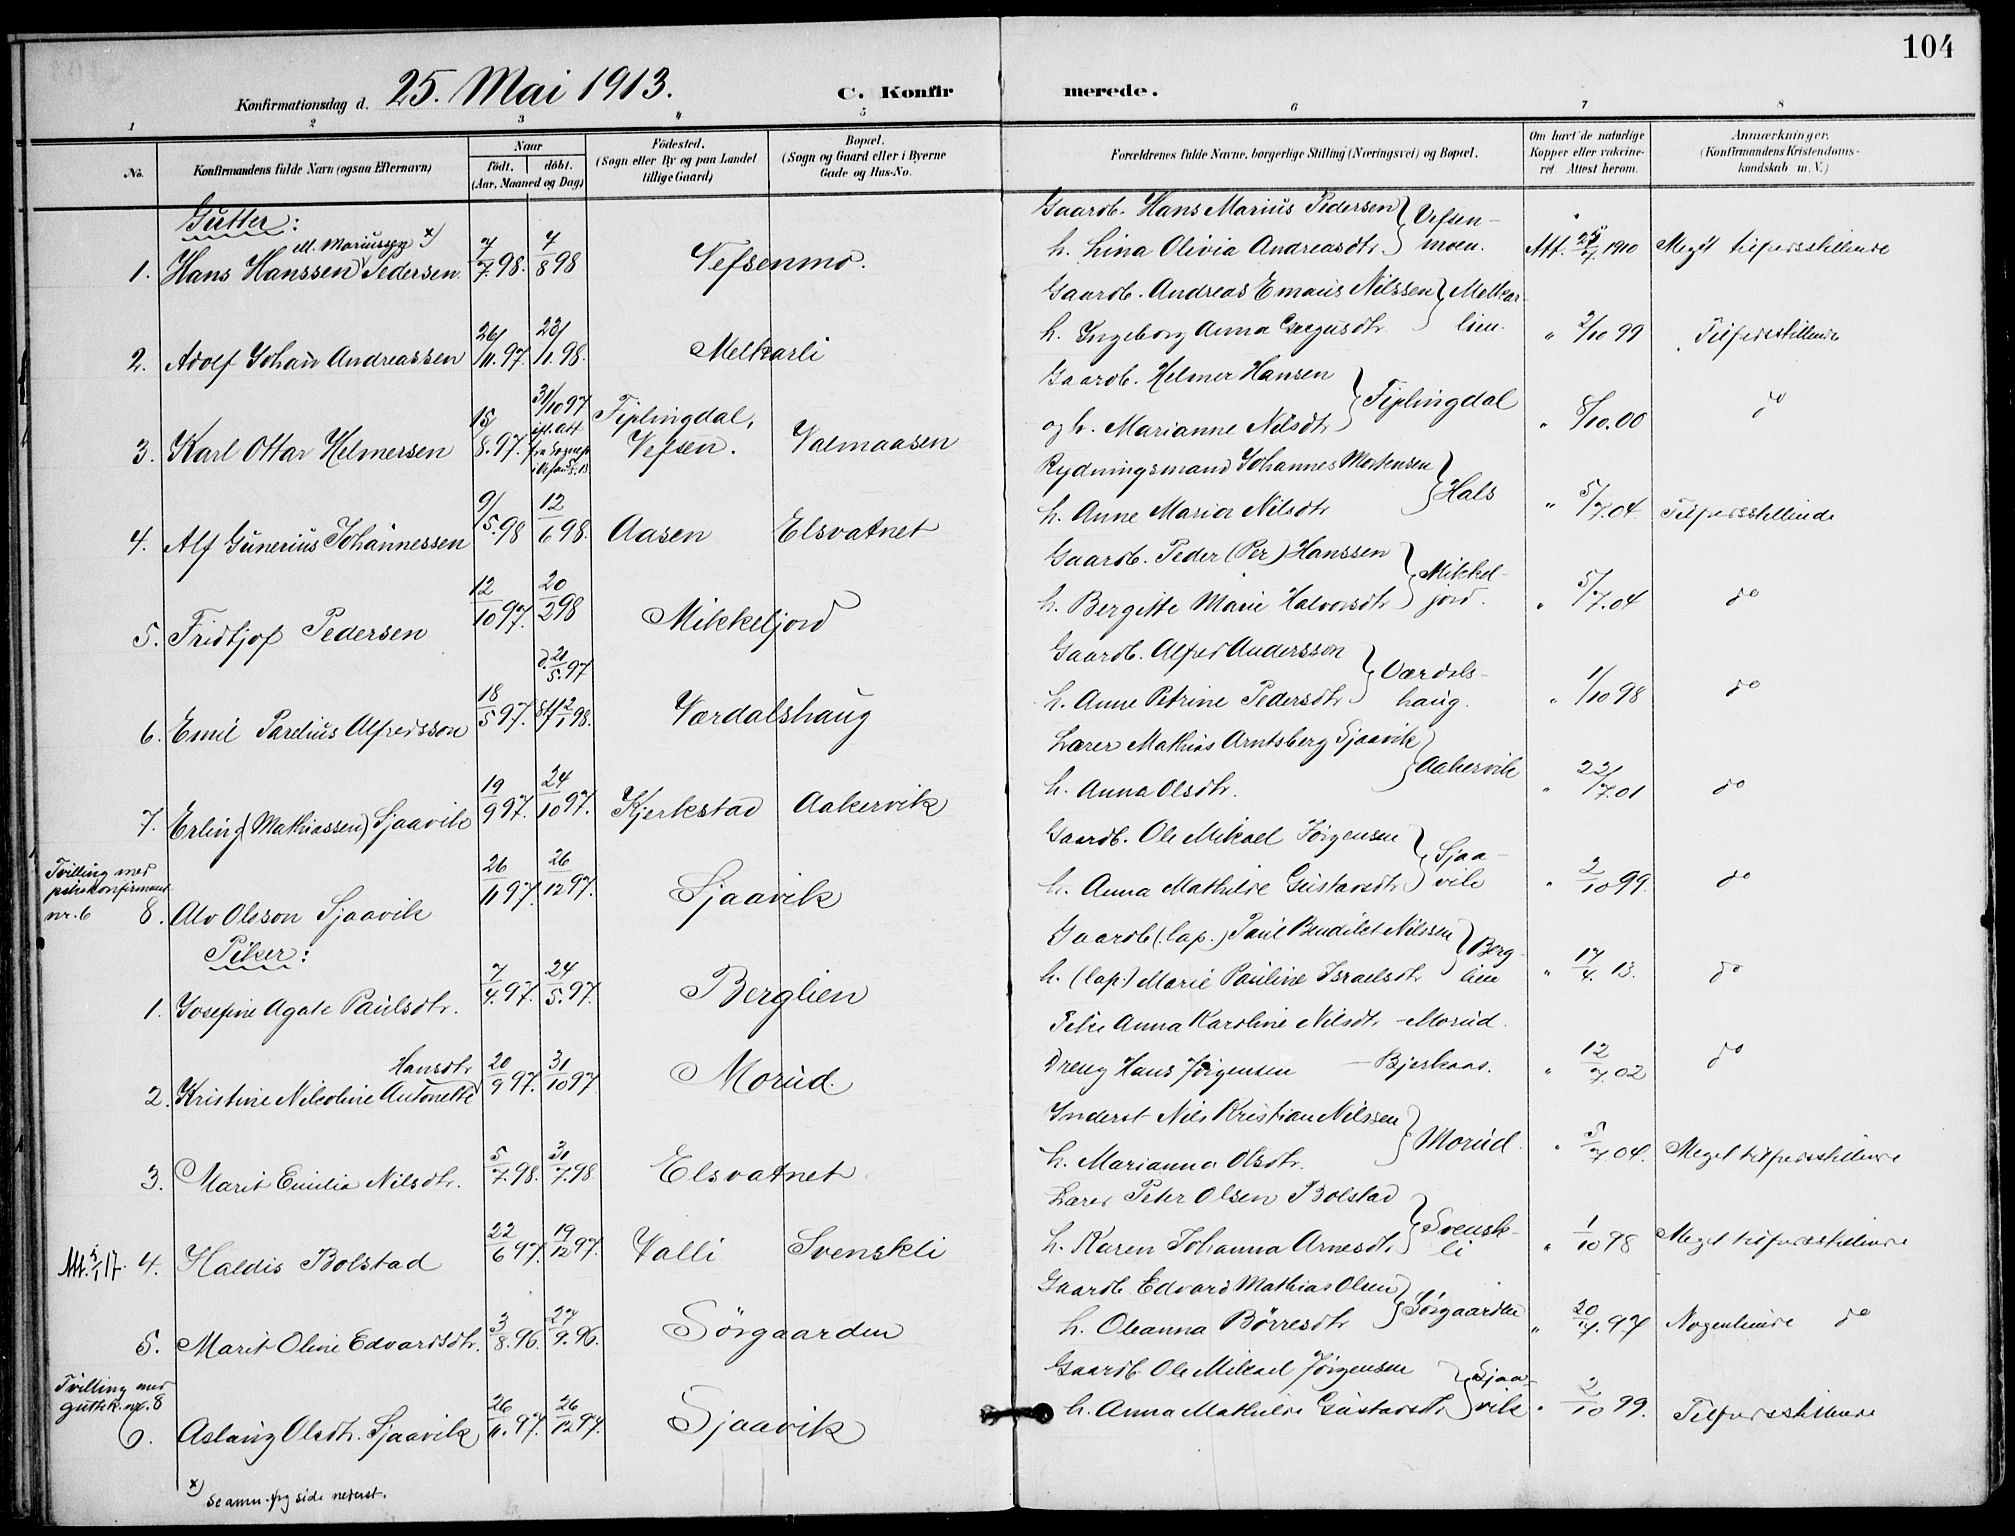 104
Konfirmationsdag d. 25. Mai 1913. C. Konfirmerede.
1 2 3 4 5 6 7 8
No. Konfirmandens fulde Navn (ogsaa Efternavn) Naar født. døbt. (Aar, Maaned og Dag) Fødested. (Sogn eller By og paa Landet tillige Gaard) Bopæl. (Sogn og Gaard eller i Byerne Gade og Hus-No. Forældrenes fulde Navne, borgerlige Stilling (Næringsvei) og Bopæl. Om havt de naturlige Kopper eller vakcineret. Attest herom. Anmærkninger. (Konfirmandens Kristendomskundskab m. V.)
Gutter:
Gaardb. Hans Marius Pedersen } Vefsen-
1. Hans Hanssen Pedersen. x) 7/7.98. 7/8 98 Vefsenmo. h. Lina Olivia Andreasdtr. moen. Att. 1910 Meget tilfredsstillende
Gaardb. Andreas Emaus Nilssen } Melkar-
2. Adolf Johan Andreassen 26/11.97. 23/1.98. Melkarli h. Ingeborg Anna lien. " 2/10 99 Tilfredsstillende
Gaardb. Helmer Hansen
3. Karl Ottar Helmersen 15/8.97. 31/10 97 Fiplingdal, Vefsen. Valmaasen og h. Marianne Nilsdtr } Fiplingdal " 8/10.00 do
Rydningsmand Johannes Mortensen
4. Alf Gunerius Johannessen 9/5.98 12/6 98. Aasen Elsvatnet h. Anne Maria Nilsdtr } Hals " 5/7.04 Tilfredsstillende
Gaardb. Peder (Per) Hanssen } Mikkel-
5. Fridtjof Pedersen 12/10 97. 20/2 98 Mikkeljord h. Bergitte Marie Halvorsdtr jord. " 5/7.04 do
d. 21/5.97 Gaardb. Alfred Andersson } Værdals-
6. Emil Parelius Alfredsson 18/5 97. 12/1 98. Værdalshaug h. Anne Petrine Pedersdtr haug. " 1/10 98 do
Lærer Mathias Arntsberg Sjaavik
7. Erling (Mathiassen) Sjaavik 19/9 97. 24/10 97. Kjerkstad Aakervik h. Anna Olsdtr. } Aakervik " 22/7.01 do
Tvilling med
nr. 6 Gaardb. Ole Mikael Jørgensen } Sjaa-
8. Alv Olsson Sjaavik 26/11 97. 26/12 97. Sjaavik h. Anna Mathilde Gustavsdtr vik " 2/10 99. do
Piker:
Gaardb. (lap.) Paul Bendikt Nilssen } Berg-
1. Josefine Agate Paulsdtr. 7/4.97. 24/5.97. Berglien h. (lap.) Marie Pauline Israelsdtr lien " 17/4. 13. do
Pike Anna Karoline Nilsdtr - Morud.
2. Kristine Nikoline Antonette Hansdtr 20/9 97. 31/10 97 Morud. Dreng Hans Jørgensen - " 12/7.02 do
Inderst Nils Kristian Nilssen
3. Marit Emilia Nilsdtr. 5/7.98. 31/7.98 Elsvatnet h. Marianna Olsdtr. } Morud. " 5/7.04. Meget tilfredsstillende
Lærer Peter Olsen Bolstad } Svensk-
Att. 5/1 17. 4. Haldis Bolstad 22/6 97. 19/12 97. Valli Svenskli h. Karen Johanna Arnesdtr li " 1/10 98 Meget tilfredsstillende
Gaardb. Edvard Mathias Olsen
5. Marit Oline Edvardsdtr. 3/8.96. 27/9.96. Sørgaarden h. Oleanna Børresdtr } Sørgaarden " 20/7.97 Nogenlunde do
Tvilling med
guttek. nr. 8 Gaardb. Ole Mikael Jørgensen } Sjaa-
6. Aslaug Olsdtr. Sjaavik 26/11.97. 26/12 97. Sjaavik h. Anna Mathilde Gustavsdtr vik " 2/10 99. Tilfredsstillende
x) Se anm. side nederst.